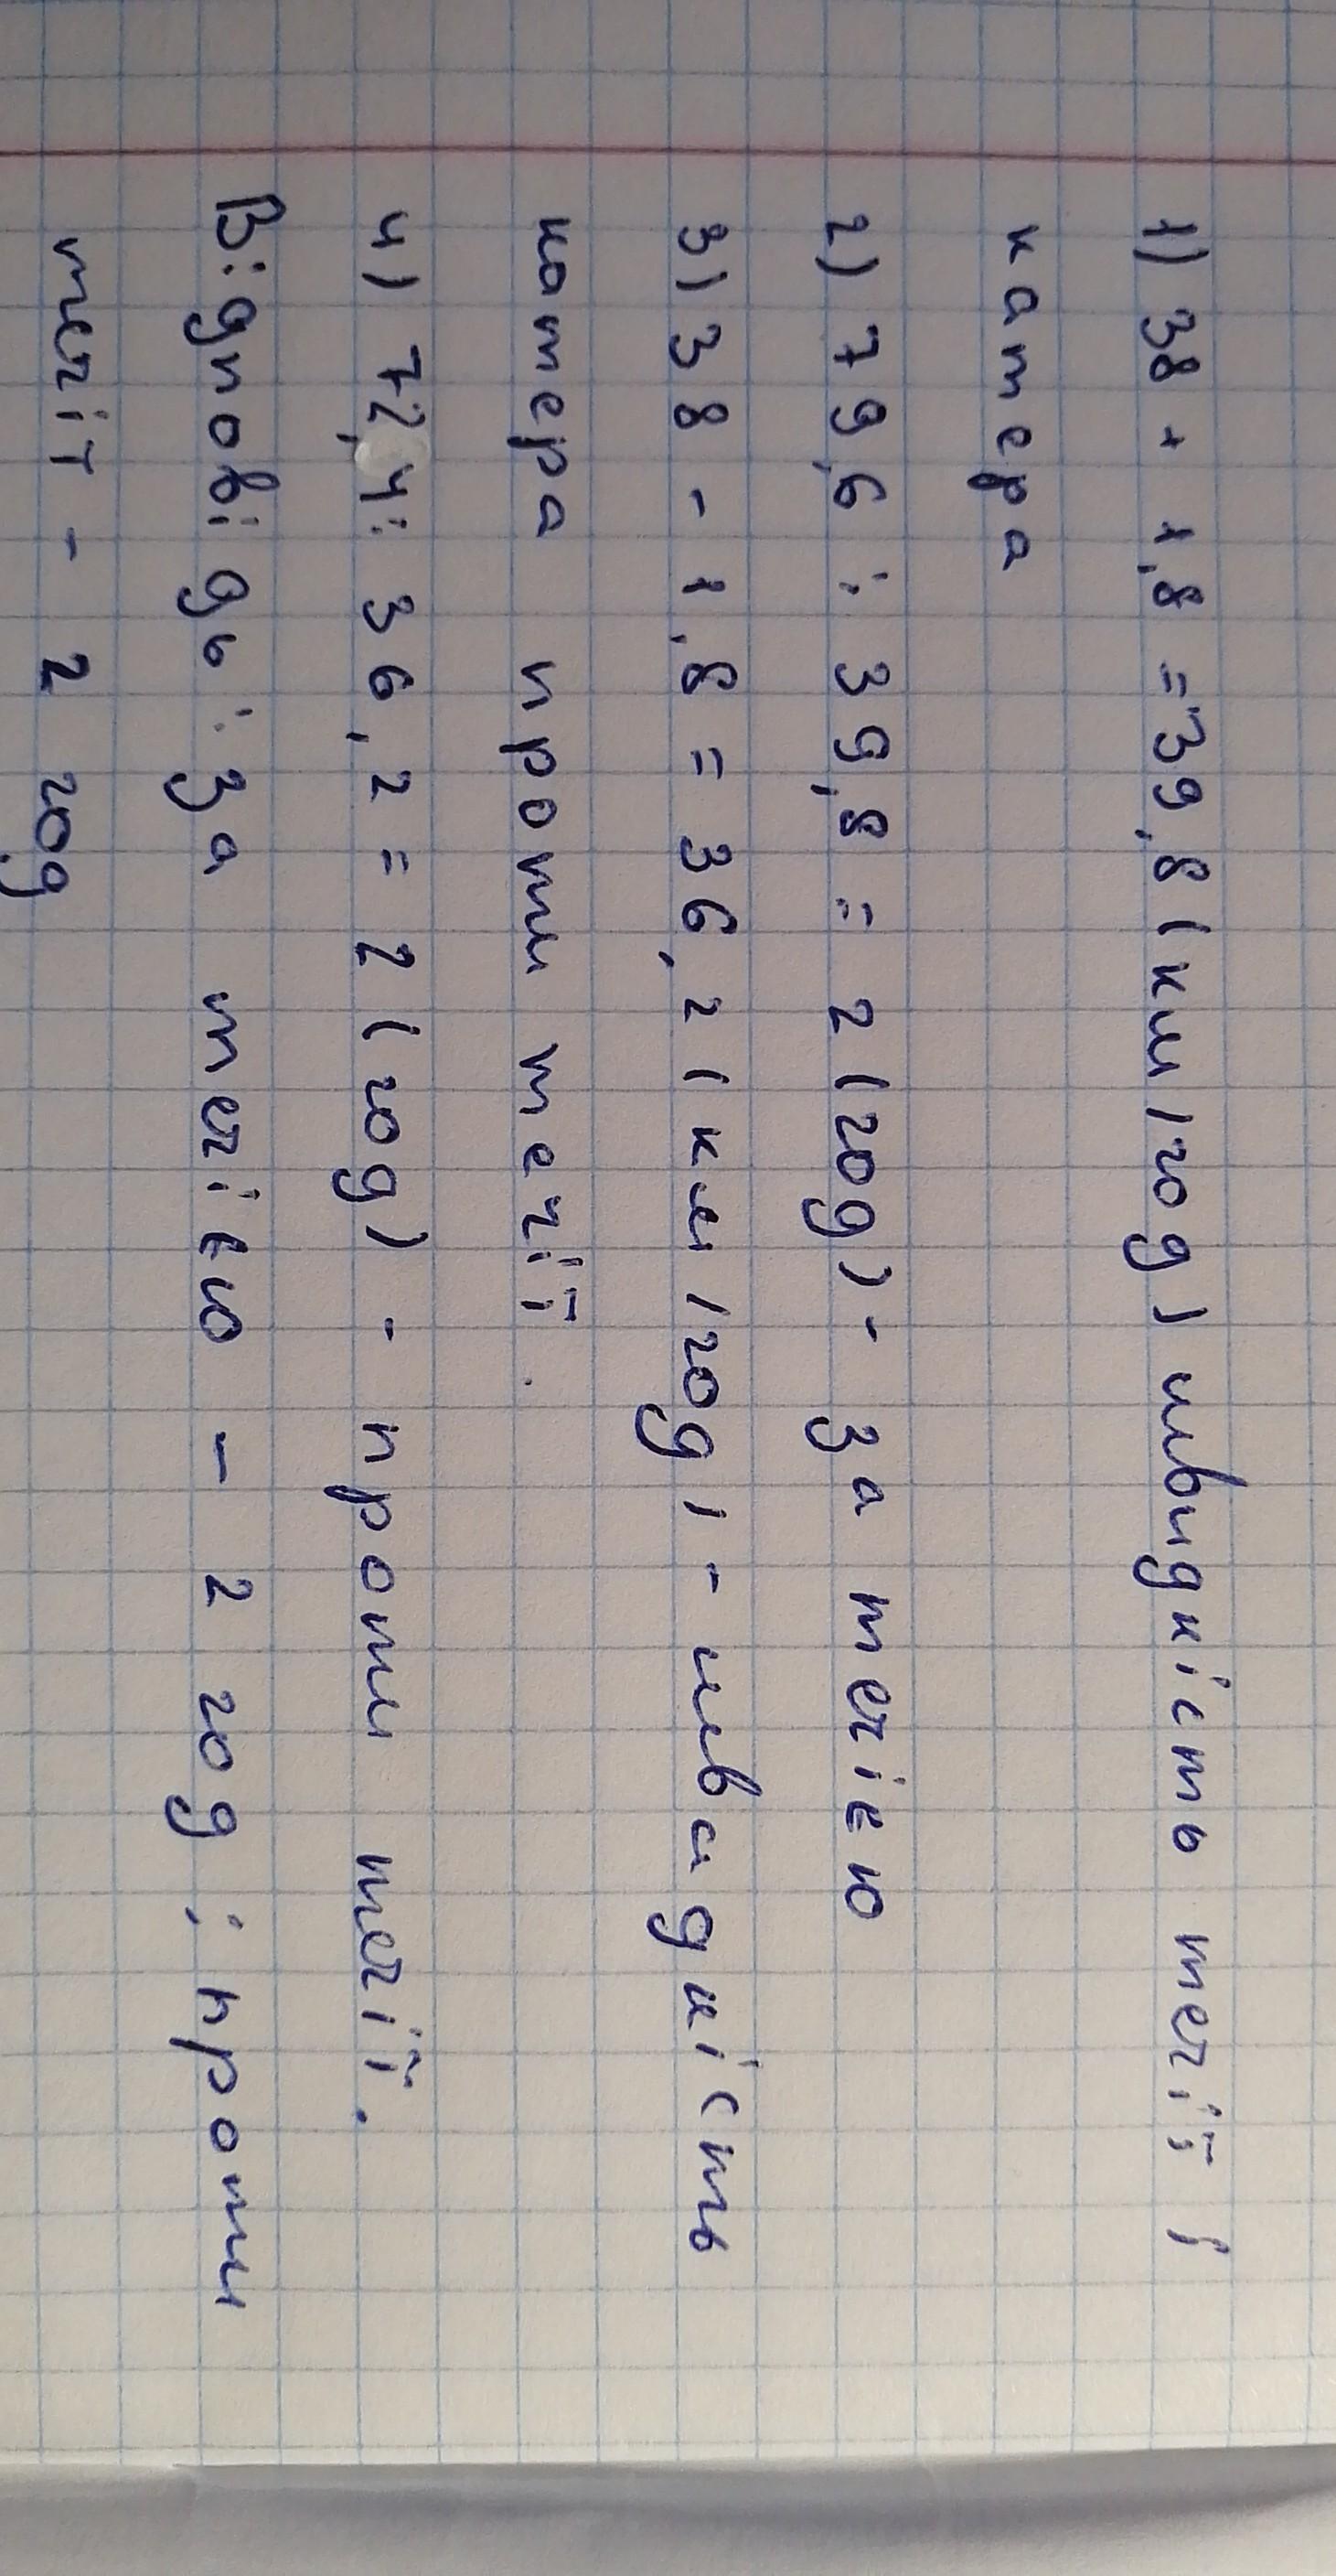 1) 38 + 1,8 = 39,8 (км/год) швидкість течії і
катера
2) 79,6 : 39,8 = 2 (год) - за течією
3) 38 - 1,8 = 36,2 (км/год) - швидкість
катера проти течії.
4) 72,4 : 36,2 = 2 (год) - проти течії.
Відповідь: за течією - 2 год; проти
течії - 2 год